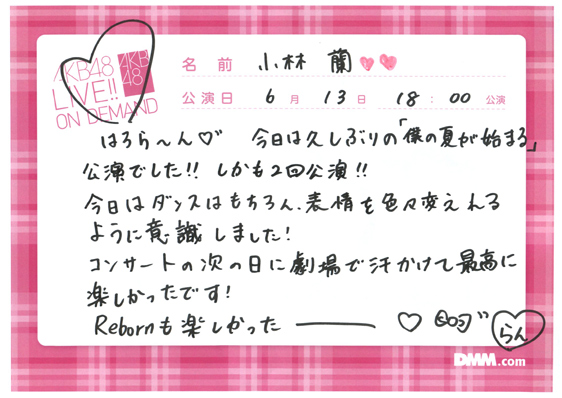 AKB48
LIVE!!
ON DEMAND
AKB
48
名前 小林 蘭
公演日 6月13日 18:00公演
はろら〜ん♡ 今日は久しぶりの「僕の夏が始まる」
公演でした!! しかも2回公演!!
今日はダンスはもちろん、表情を色々変えれる
ように意識しました!
コンサートの次の日に劇場で汗かけて最高に
楽しかったです!
Rebornも楽しかった ——— ♡
らん
DMM.com